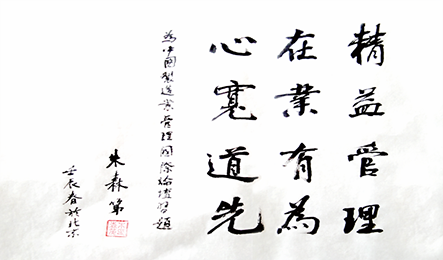 精益管理
在業有為
心寬道先
為中國製造業管理國際論壇題
朱森第
壬辰春於北京